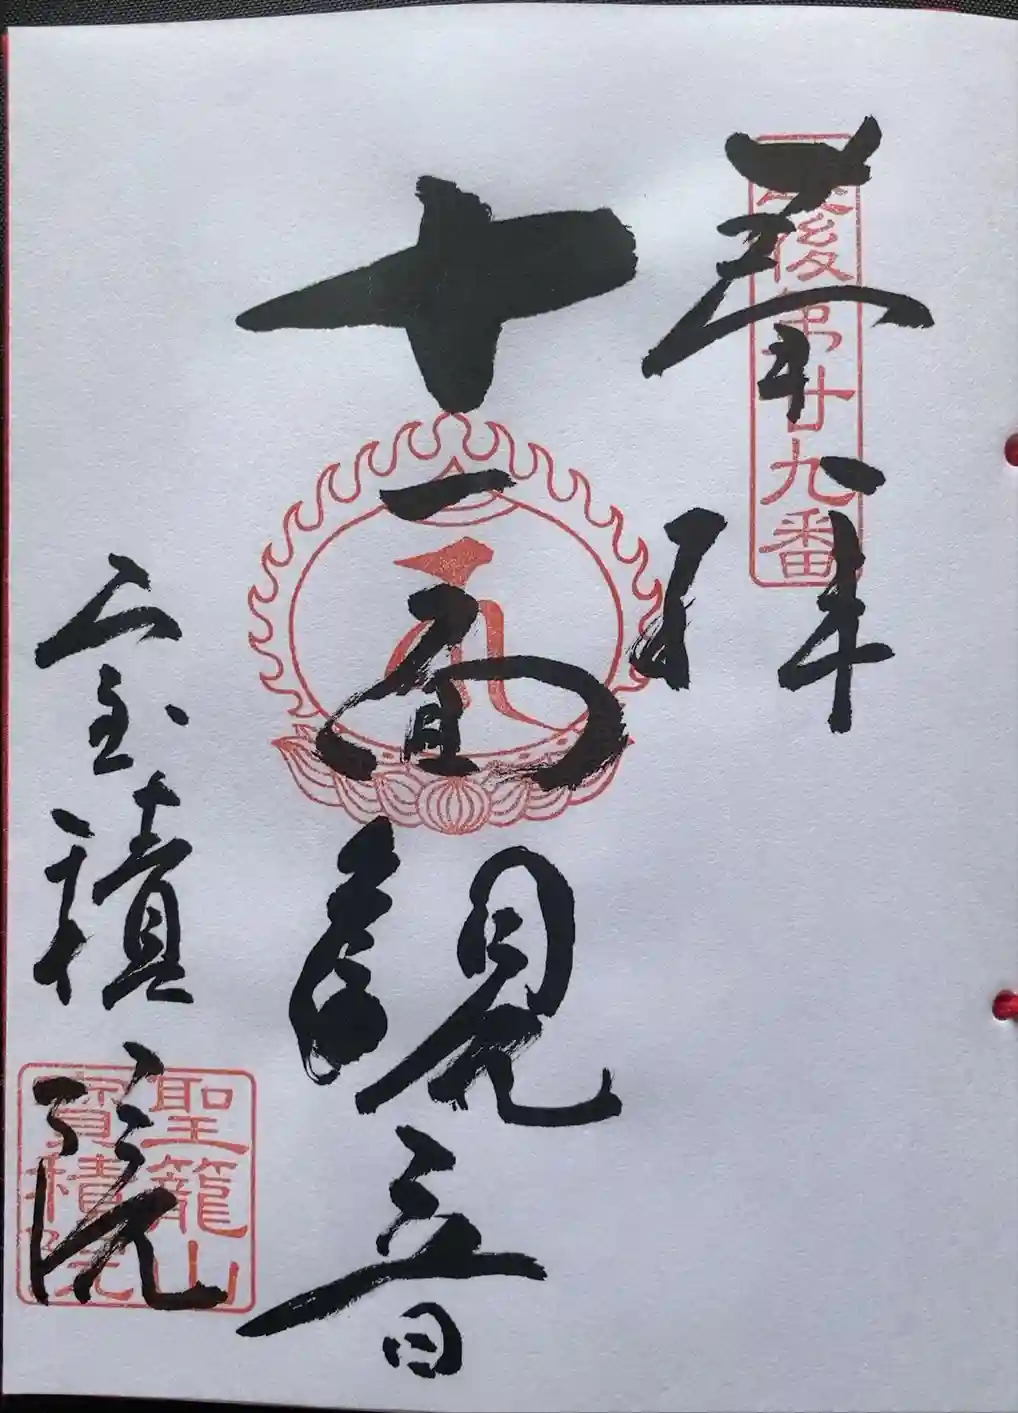 奉拝
越後第廿九番
十一面観音
宝積院
聖籠山
寶積院